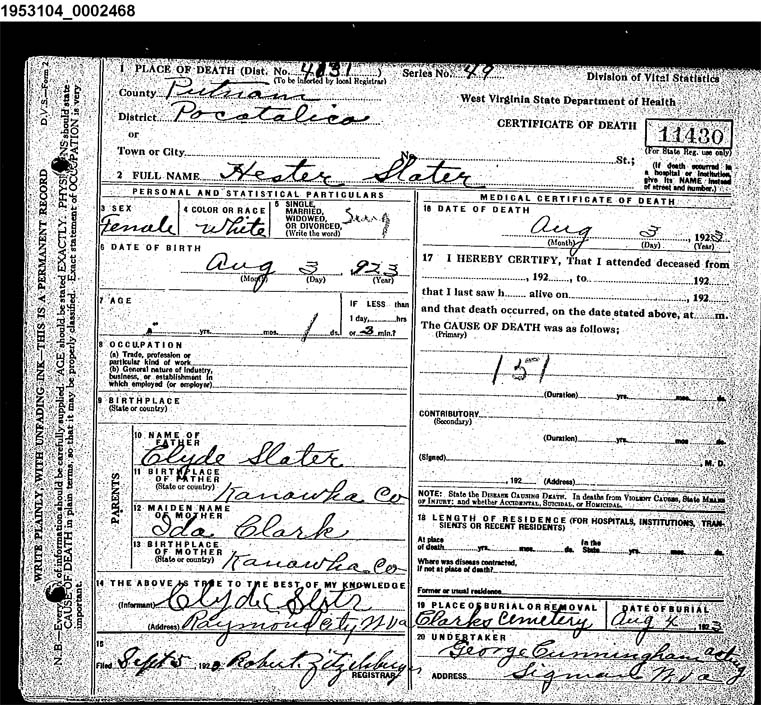 1953104_0002468
1 PLACE OF DEATH (Dist. No. 4831 )
(To be inserted by local Registrar)
Series No. 49
Division of Vital Statistics
County Putnam
West Virginia State Department of Health
District Pocatalico
CERTIFICATE OF DEATH
11430
(For State Reg. use only)
or
Town or City No. St.;
(If death occurred in
a hospital or institution,
give its NAME instead
of street and number.)
2 FULL NAME Hester Slater
PERSONAL AND STATISTICAL PARTICULARS
3 SEX
Female
4 COLOR OR RACE
White
5 SINGLE,
MARRIED,
WIDOWED,
OR DIVORCED,
(Write the word)
6 DATE OF BIRTH
Aug 3 923
(Month) (Day) (Year)
7 AGE
yrs. mos. 1 ds.
IF LESS than
1 day, hrs
or 3 min.?
8 OCCUPATION
(a) Trade, profession or
particular kind of work
(b) General nature of industry,
business, or establishment in
which employed (or employer)
9 BIRTHPLACE
(State or country)
PARENTS
10 NAME OF
FATHER
Clyde Slater
11 BIRTHPLACE
OF FATHER
(State or country)
Kanawha Co
12 MAIDEN NAME
OF MOTHER
Ida Clark
13 BIRTHPLACE
OF MOTHER
(State or country)
Kanawha Co
14 THE ABOVE IS TRUE TO THE BEST OF MY KNOWLEDGE
(Informant) Clyde Slatr
(Address) Raymond City W Va
15
Filed Sept 5, 192 Robert
REGISTRAR
MEDICAL CERTIFICATE OF DEATH
16 DATE OF DEATH
Aug 3, 1923
(Month) (Day) (Year)
17 I HEREBY CERTIFY, That I attended deceased from
, 192 , to 192
that I last saw h alive on , 192
and that death occurred, on the date stated above, at m.
The CAUSE OF DEATH was as follows;
(Primary)
151
(Duration) yrs. mos. ds.
CONTRIBUTORY
(Secondary)
(Duration) yrs. mos ds.
(Signed) , M. D.
, 192 (Address)
NOTE: State the DISEASE CAUSING DEATH. In deaths from VIOLENT CAUSES, State MEANS
OF INJURY; and whether ACCIDENTAL, SUICIDAL, or HOMICIDAL.
18 LENGTH OF RESIDENCE (FOR HOSPITALS, INSTITUTIONS, TRAN-
SIENTS OR RECENT RESIDENTS)
At place
of death yrs. mos. ds.
In the
State yrs. mos. ds.
Where was disease contracted,
if not at place of death?
Former or usual residence
19 PLACE OF BURIAL OR REMOVAL
Clarks Cemetery
DATE OF BURIAL
Aug 4 1923
20 UNDERTAKER
George Cunningham acting
ADDRESS Sigman W Va
D.V.S.—Form 2
WRITE PLAINLY, WITH UNFADING INK—THIS IS A PERMANENT RECORD
N. B.—Every of information should be carefully supplied. AGE should be stated EXACTLY. PHYSI NS should state
CAUSE OF DEATH in plain terms, so that it may be properly classified. Exact statement of OCCUPATION is very
important.